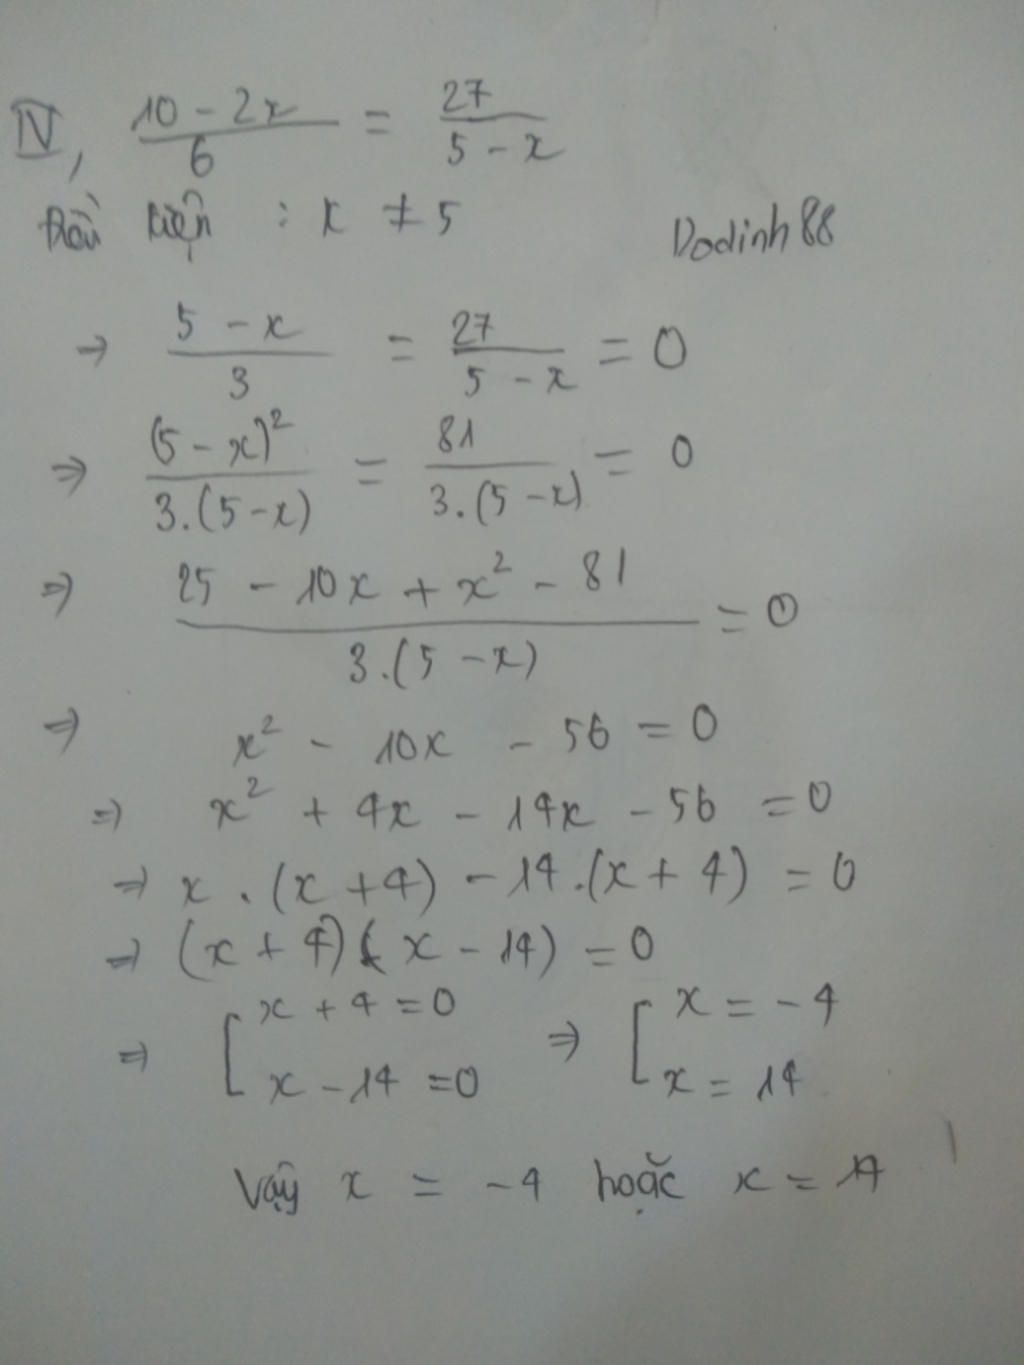 IV, \frac{10 - 2x}{6} = \frac{27}{5 - x}
Điều kiện : x ≠ 5
Dodinh88
→ \frac{5 - x}{3} = \frac{27}{5 - x} = 0
⇒ \frac{(5 - x)^2}{3.(5 - x)} = \frac{81}{3.(5 - x)} = 0
⇒ \frac{25 - 10x + x^2 - 81}{3.(5 - x)} = 0
⇒ x^2 - 10x - 56 = 0
⇒ x^2 + 4x - 14x - 56 = 0
⇒ x . (x + 4) - 14.(x + 4) = 0
⇒ (x + 4)(x - 14) = 0
⇒ [ x + 4 = 0 ⇒ [ x = -4
x - 14 = 0 x = 14
Vậy x = -4 hoặc x = 14